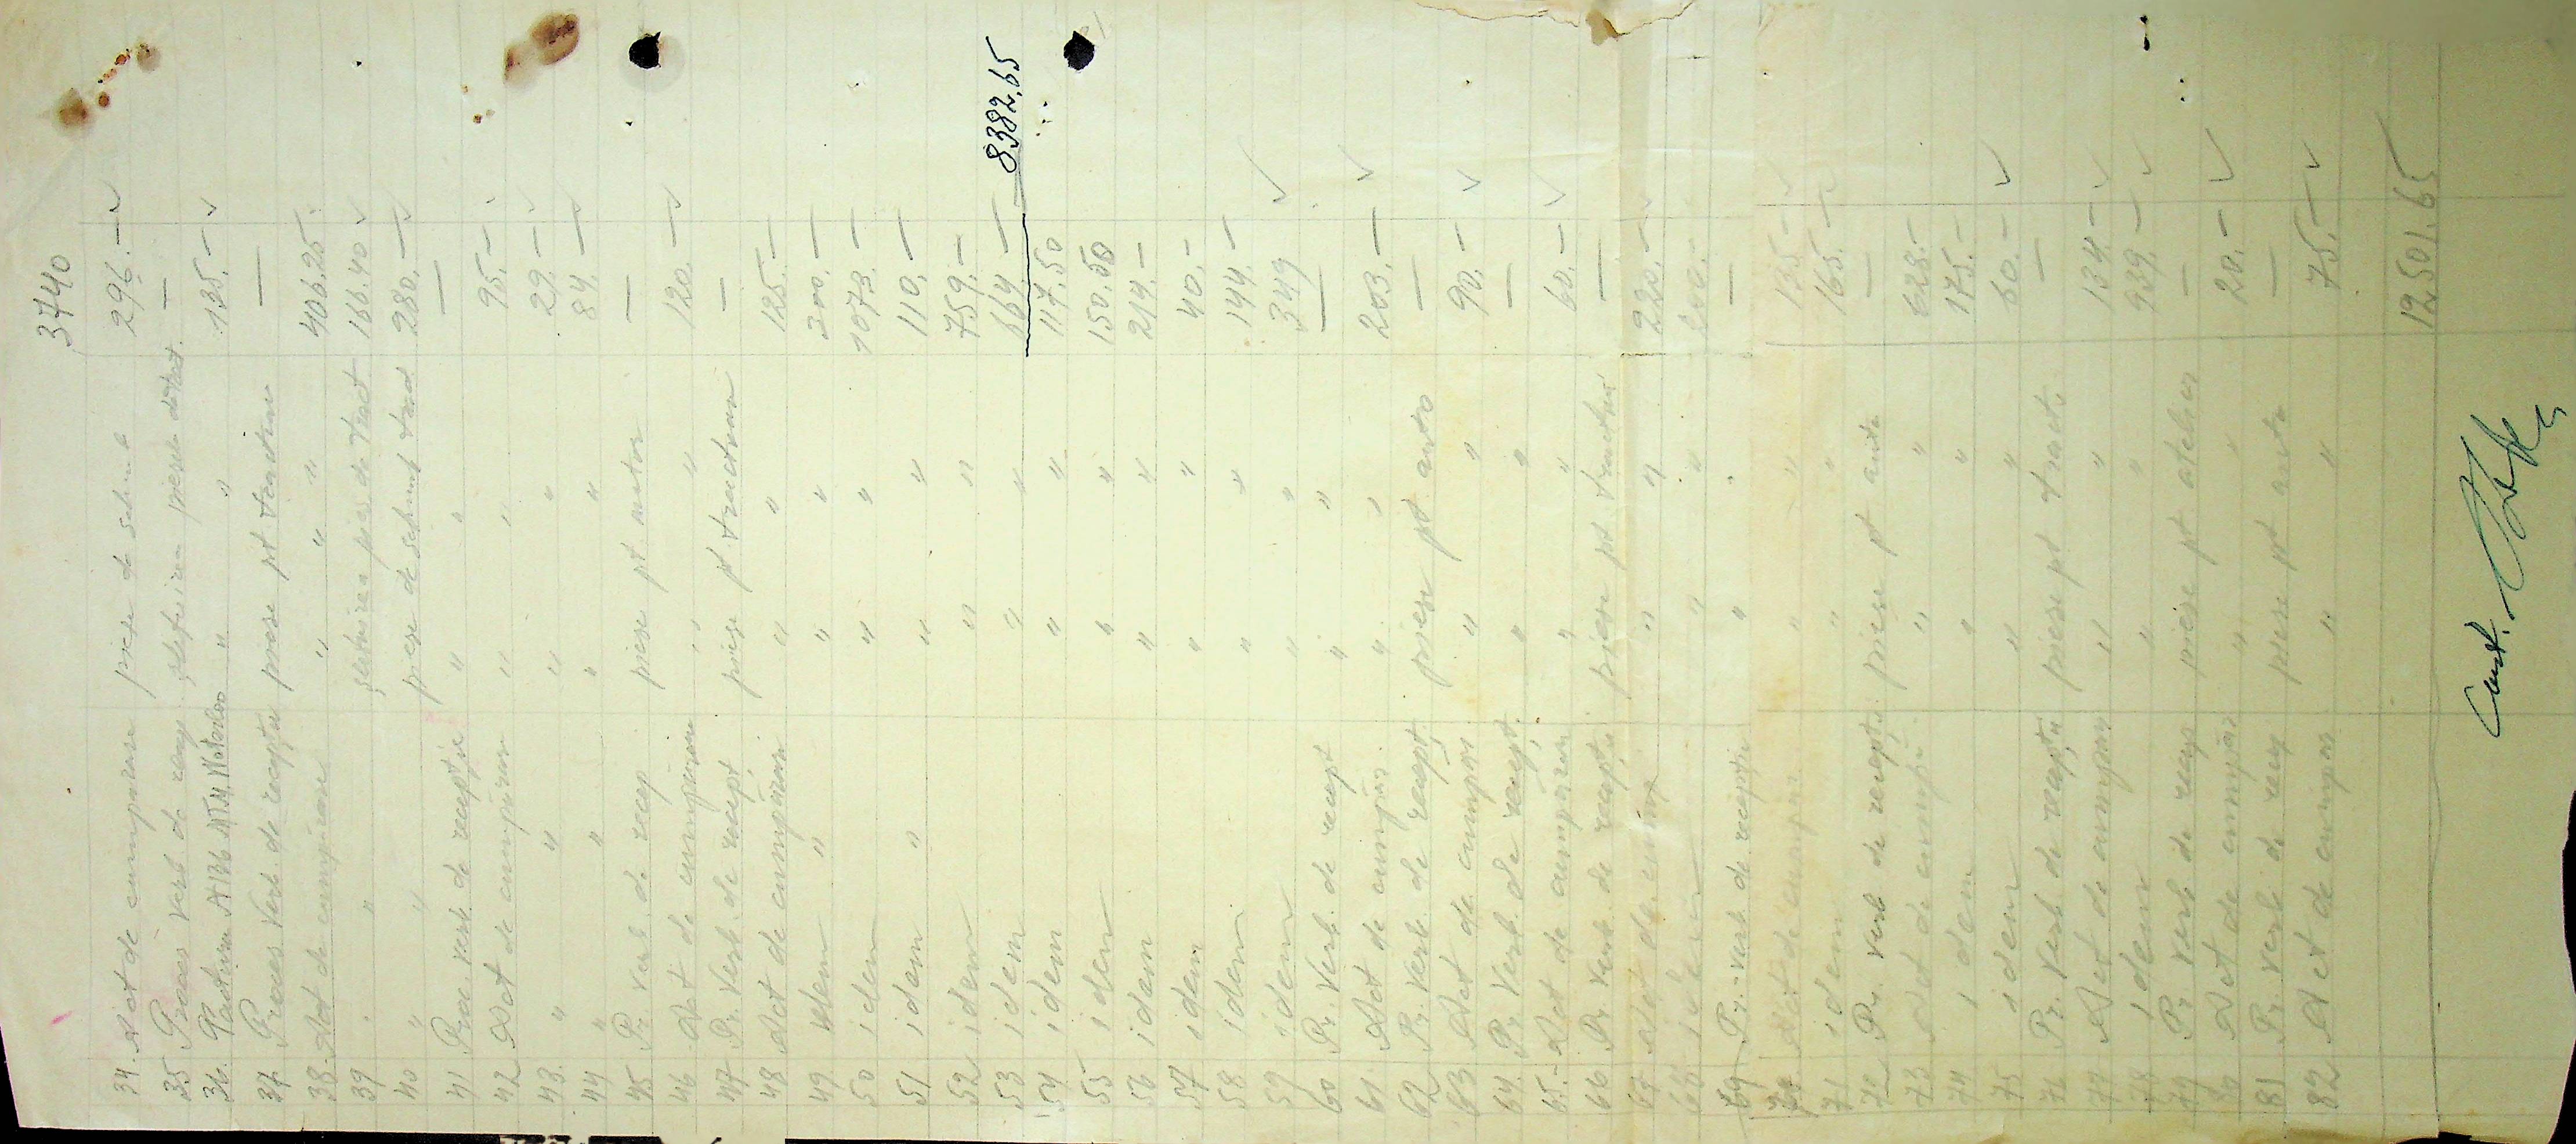 3740
34. Act de cumparare piese de schimb 296.— ✓
35 Proces verb de recep. piese de tract. —
36. Factura A136 " " 135.— ✓
37. Proces verb. de recepție piese pt tractoare —
38. Act de cumpărare " " " 406.25.
39 " " piese de tract 166.40 ✓
40 " " piese de schimb tract 280.— ✓
41 Proc. verb. de recepție " " —
42 Act de cumpărare " " 95.— ✓
43. " " " " 29.— ✓
44 " " " " 84.— ✓
45 Pr. verb. de recep piese pt motor —
46. Act de cumpărare " " 120.— ✓
47 Pr. Verb. de recepț piese pt tractoare —
48 Act de cumpărare " " 125.—
49. idem " " " 300.—
50 idem " " 1073.—
51 idem " " " 110.—
52 idem " " 759.—
53 idem " " 664.— 8382,65
54 idem " " 117.50
55 idem " " 150.50
56 idem " " 214.—
57 idem " " 40.—
58 idem " " 144.—
59 idem " " 349 ✓
60 Pr. Verb. de recept " " —
61. Act de cumpăr " " 203.— ✓
62 Pr. Verb. de recepț piese pt auto —
63 Act de cumpar " " 90.— ✓
64. Pr Verb. de recept. " " —
65.— Act de cumpărare " " 60.— ✓
66 Pr Verb. de recepție piese pt tractor —
67 Act de cump " " 220.— ✓
68 idem " "
69 Pr.-verb de recepție " " —
70 Act de cumpar " " 135.— ✓
71 idem " " 165.— ✓
72 Pr. verb de recepți piese pt auto —
73 Act de cumpăr " " 628.—
74 idem " " 175.—
75 idem " " 60.— ✓
76 Pr. Verb de recepție piese pt tract. —
77 Act de cumpărar " " 134.— ✓
78 idem " " 939.— ✓
79 Pr verb de recep piese pt atelier —
80 Act de cumpăr " " 20.— ✓
81 Pr verb. de recep piese pt auto —
82 Act de cumpar " " 75.— ✓
12.501.65
Cont.